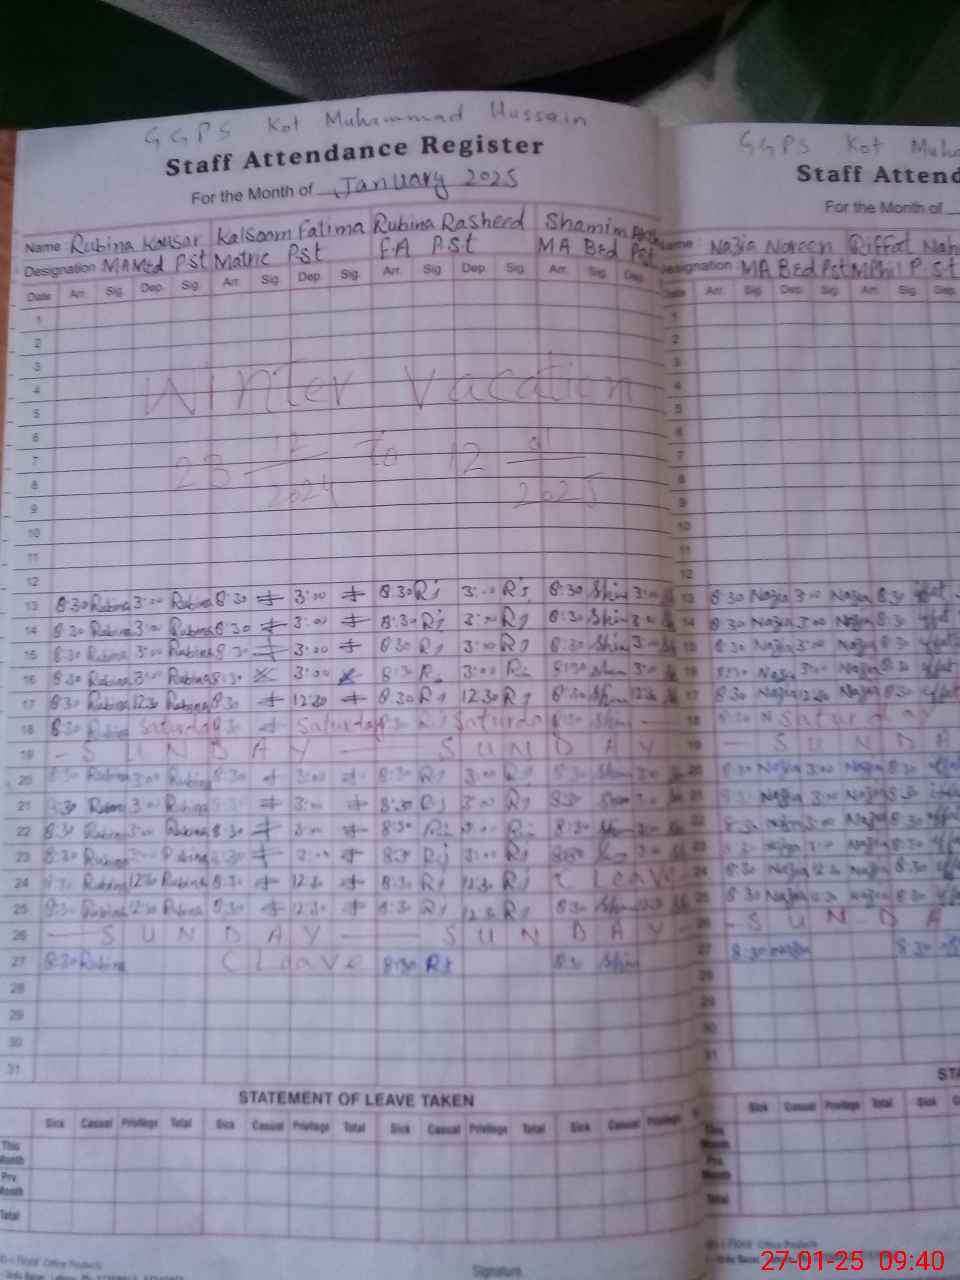 GGPS Kot Muhammad Hussain
Staff Attendance Register
For the Month of January 2025
Name Rubina Kausar Kalsoom Fatima Rubina Rasheed Shamim
Designation MA Med Pst Matric Pst FA P.St MA Bed Pst
Date Arr. Sig. Dep. Sig. Arr. Sig. Dep. Sig. Arr. Sig. Dep. Sig. Arr. Sig. Dep.
1
2
3
4
5
Winter Vacation
6
7
8
9
23 12/2024 To 12 01/2025
10
11
12
13 8:30 Rubina 3:00 Rubina 8:30 3:00 8:30 Rj 3:00 Rj 8:30 Shim 3:00
14 8:30 Rubina 3:00 Rubina 8:30 3:00 8:30 Rj 3:00 Rj 8:30 Shim 3:00
15 8:30 Rubina 3:00 Rubina 8:30 3:00 8:30 Rj 3:00 Rj 8:30 Shim 3:00
16 8:30 Rubina 3:00 Rubina 8:30 3:00 8:30 3:00 8:30 Shim 3:00
17 8:30 Rubina 12:30 Rubina 8:30 12:30 8:30 Rj 12:30 Rj 8:30 Shim 12:30
18 8:30 Rubina Saturday 8:30 Saturday 8:30 Rj Saturday 8:30 Shim
19 S U N D A Y S U N D A Y
20 8:30 Rubina 3:00 Rubina 8:30 3:00 8:30 Rj 3:00 Rj 8:30 Shim 3:00
21 8:30 3:00 Rubina 3:00 8:30 Rj 3:00 Rj 8:30
22 8:30 Rubina 3:00 Rubina 8:30 3:00 8:30 3:00 8:30
23 8:30 Rubina Rubina 8:30 3:00 8:30 Rj 3:00 Rj
24 8:30 Rubina 12:30 Rubina 8:30 12:30 8:30 Rj 12:30 Rj C Leave
25 8:30 Rubina 12:30 Rubina 8:30 12:30 8:30 Rj 12:30 Rj 8:30 Shim
26 S U N D A Y S U N D A Y
27 8:30 Rubina C Leave 8:30 Rj 8:30 Shim
28
29
30
31
STATEMENT OF LEAVE TAKEN
Sick Casual Privilege Total Sick Casual Privilege Total Sick Casual Privilege Total Sick Casual Privilege
This Month
Prv Month
Total
Office Products
Signature
GGPS Kot Muha
Staff Attend
For the Month of
Name: Nazia Noreen Riffat Nah
Designation MA Bed Pst MPhil P.St
Date Arr. Sig. Dep. Sig. Arr. Sig. Dep.
1
2
3
4
5
6
7
8
9
10
11
12
13 8:30 Nazia 3:00 Nazia 8:30
14 8:30 Nazia 3:00 Nazia 8:30
15 8:30 Nazia 3:00 Nazia 8:30
16 8:30 Nazia 3:00 Nazia 8:30
17 8:30 Nazia 12:30 Nazia 8:30
18 8:30 N Saturday
19 S U N D A
20 8:30 Nazia 3:00 Nazia 8:30
21 Nazia 3:00 Nazia 8:30
22 8:30 Nazia 3:00 Nazia 8:30
23 Nazia 3:00 Nazia 8:30
24 8:30 Nazia 12:30 Nazia 8:30
25 8:30 Nazia 12:30 Nazia 8:30
26 S U N D A
27 8:30 Nazia 8:30
28
29
30
31
STA
Sick Casual Privilege Total Sick
This Month
Prv. Month
Total
Office Products
27-01-25 09:40